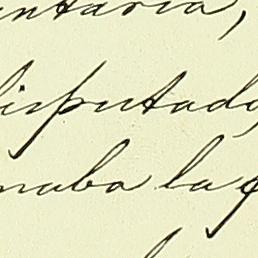 ntaria,
disputado,
naba la